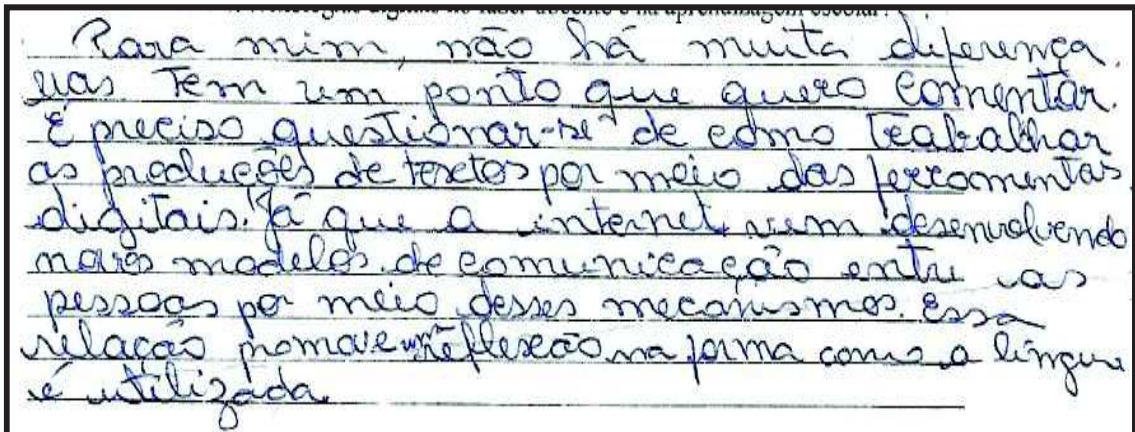 tecnologias digitais no fazer docente e na aprendizagem escolar?
Para mim, não há muita diferença.
mas tem um ponto que quero comentar.
É preciso questionar-se de como trabalhar
as produções de textos por meio das ferramentas
digitais. Já que a internet vem desenvolvendo
novos modelos de comunicação entre as
pessoas por meio desses mecanismos. Essa
relação promove uma reflexão na forma como a língua
é utilizada.